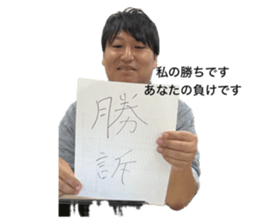 私の勝ちです
あなたの負けです
勝
訴